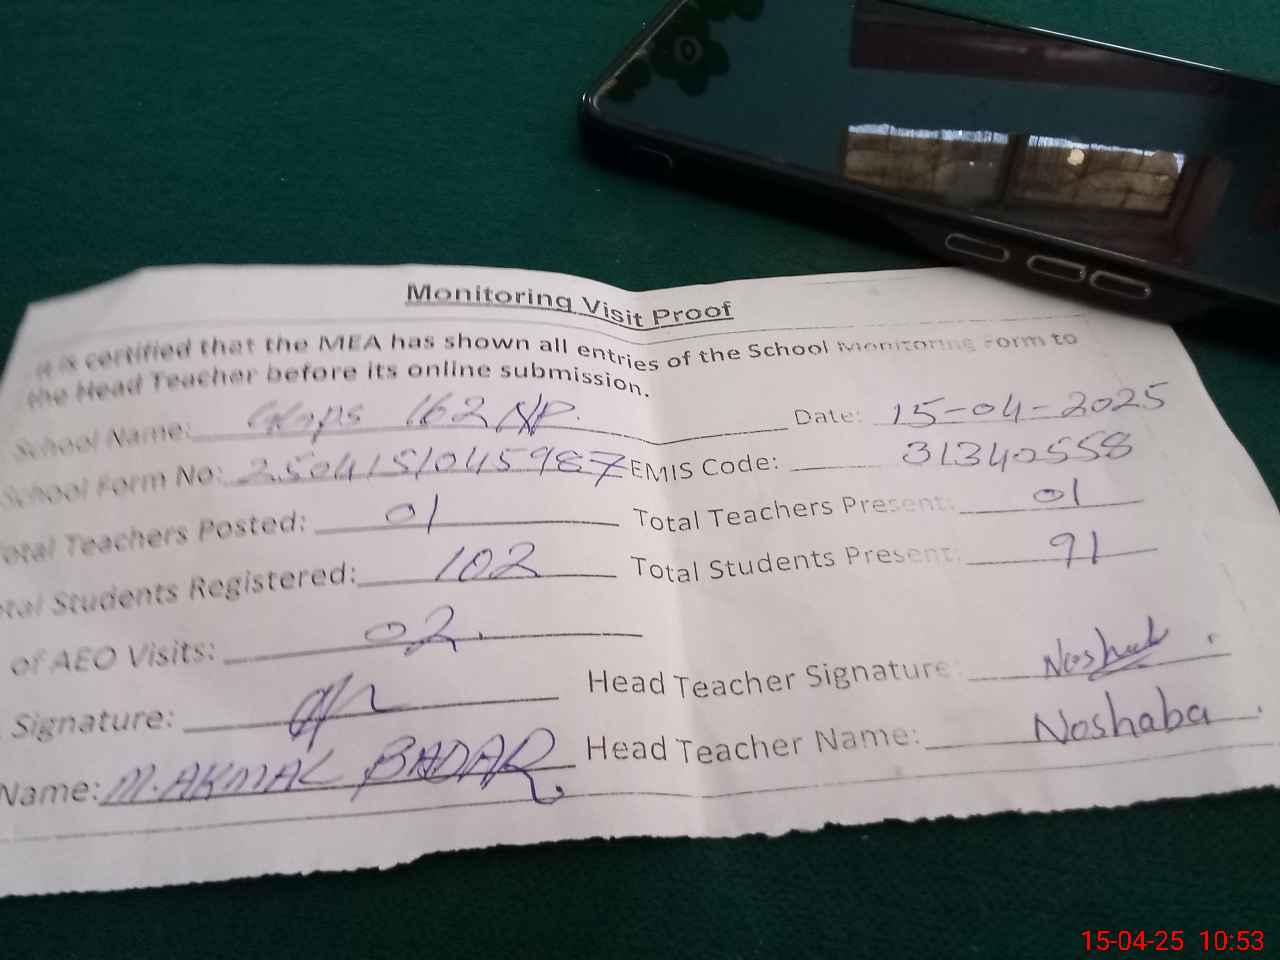 Monitoring Visit Proof
It is certified that the MEA has shown all entries of the School Monitoring Form to
the Head Teacher before its online submission.
School Name: 162 NP. Date: 15-04-2025
School Form No: 250415/045987 EMIS Code: 31340558
otal Teachers Posted: 01 Total Teachers Present: 01
tal Students Registered: 102 Total Students Present: 91
of AEO Visits: 02.
Signature: Head Teacher Signature:
Name: M.AKMAL BADAR Head Teacher Name: Noshaba
15-04-25 10:53